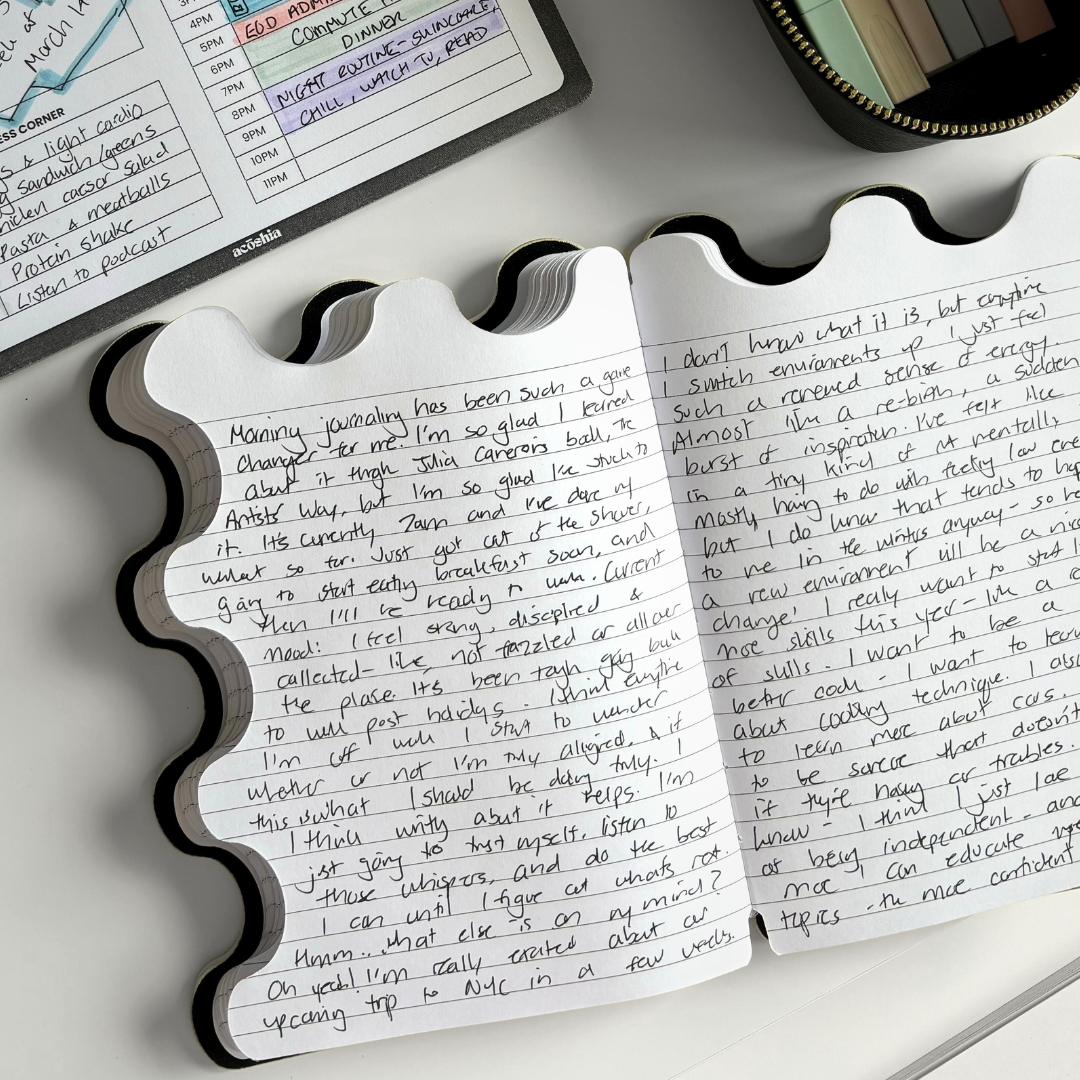 3PM
4PM
5PM
6PM
7PM
8PM
9PM
10PM
11PM
EOD ADMIN
COMMUTE
DINNER
NIGHT ROUTINE - SKINCARE,
CHILL, WATCH TV, READ
March
ESS CORNER
& light cardio
sandwich/greens
chicken caesar salad
Pasta & meatballs
Protein shake
Listen to podcast
acōshia
Morning journaling has been such a game
changer for me. I'm so glad I learned
about it through Julia Cameron's book, The
Artists Way, but I'm so glad I've stuck to
it. It's currently 7am and I've done my
workout so far. Just got out of the shower,
going to start eating breakfast soon, and
then I'll be ready to work. Current
Mood: I feel strong, disciplined &
collected - like not frazzled or all over
the place. It's been tough going back
to work post holidays. I think anytime
I'm off work I start to wonder
whether or not I'm truly aligned, & if
this is what I should be doing truly. I
I think writing about it helps. I'm
just going to trust myself, listen to
those whispers, and do the best
I can until I figure out what's next.
Hmm... what else is on my mind?
Oh yeah! I'm really excited about our
upcoming trip to NYC in a few weeks.
I don't know what it is, but anytime
I switch environments up I just feel
such a renewed sense of energy.
Almost like a re-birth, a sudden
burst of inspiration. I've felt like
in a tiny kind of rut mentally,
mostly having to do with feeling low
but I do know that tends to
to me in the winters anyway - so
a new environment will be a
change! I really want to start
more skills this year - like a
of skills. I want to be a
better cook - I want to learn
about cooking technique. I also
to learn more about cars.
to be someone that doesn't
if they're having car troubles.
know - I think I just love
of being independent - and
more I can educate
topics - the more confident